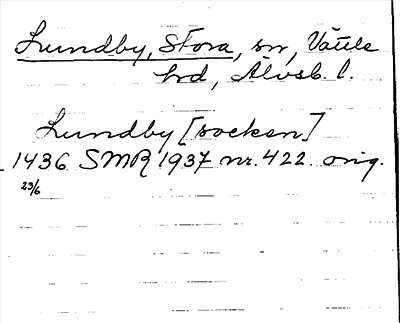 Lundby, Stora, sn, Vättle
hrd, Älvsb. l.
Lundby [socken]
1436 SMR 1937 nr. 422. orig.
23/6